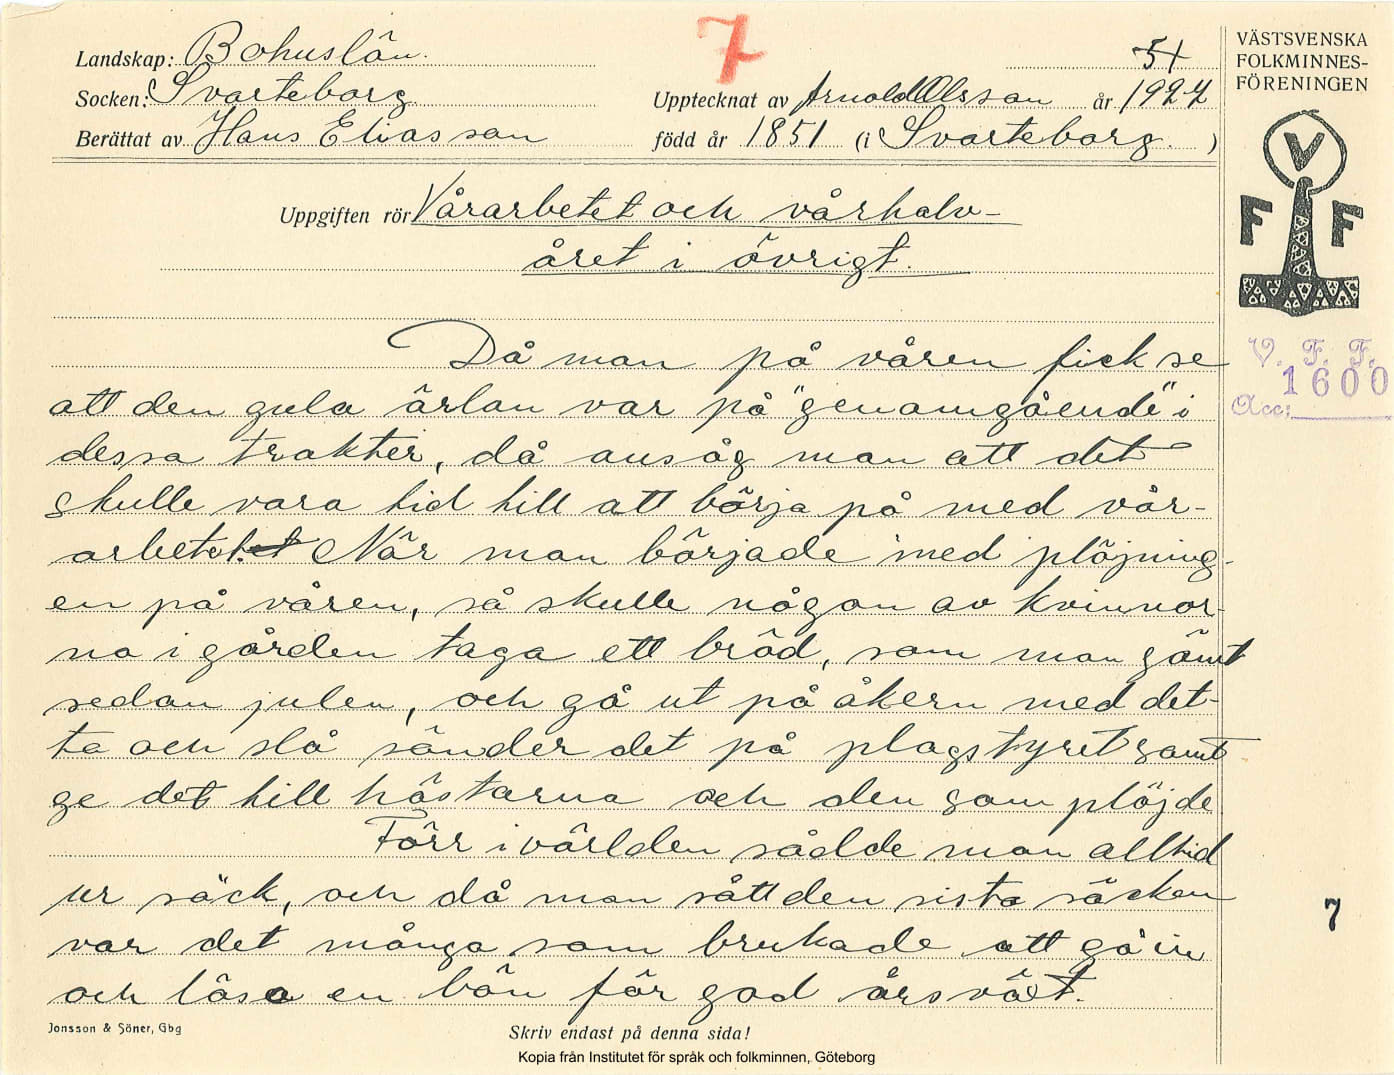 7
Landskap: Bohuslän.
51
Socken: Svarteborg
Upptecknat av Arnold Olsson år 1924
Berättat av Hans Eliasson
född år 1851 (i Svarteborg.)
Uppgiften rör Vårarbetet och vårhalv-
året i övrigt.
Då man på våren fick se
att den gula ärlan var på "genomgående" i
dessa trakter, då ansåg man att det
skulle vara tid till att börja på med vår-
arbetet. När man började med plöjning-
en på våren, så skulle någon av kvinnor-
na i gården taga ett bröd, som man gömt
sedan julen, och gå ut på åkern med det-
ta och slå sönder det på plogstyret samt
ge det till hästarna och den som plöjde
Förr i världen sådde man alltid
ur säck, och då man sått den sista säcken
var det många som brukade att gå in
och läsa en bön för god årsväxt.
Jonsson & Söner, Gbg
Skriv endast på denna sida!
Kopia från Institutet för språk och folkminnen, Göteborg
VÄSTSVENSKA
FOLKMINNES-
FÖRENINGEN
V
F F
V. F. F.
1600
Acc:
7